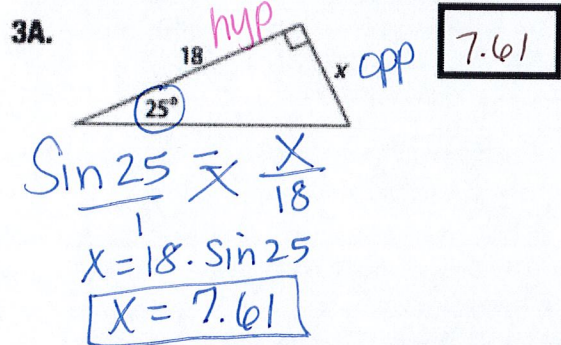 3A.
hyp
18
x opp
7.61
25°
Sin 25 = x
1 18
x = 18 · sin 25
x = 7.61